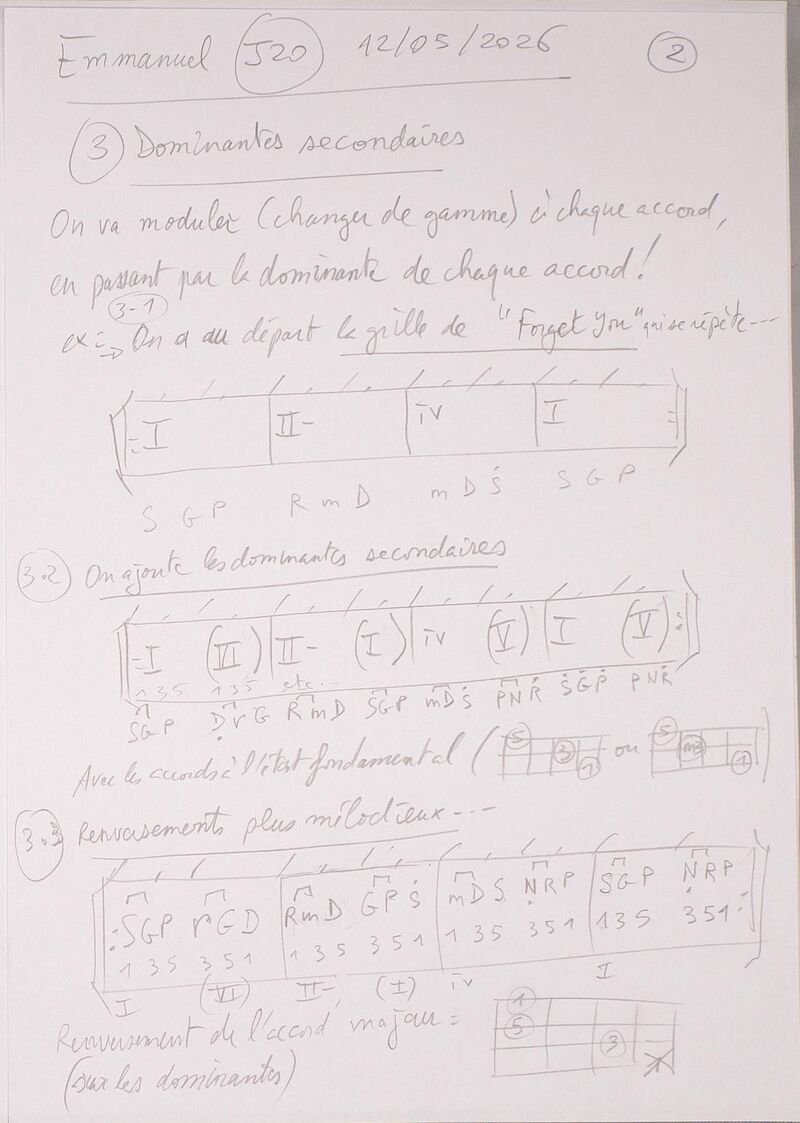 Emmanuel J20 12/05/2026 2
3 Dominantes secondaires
On va moduler (changer de gamme) à chaque accord,
en passant par la dominante de chaque accord!
3-1
ex: → On a au départ la grille de "Forget You" qui se répète---
I II- IV I
S G P R m D m D S S G P
3.2 On ajoute les dominantes secondaires
I (VI) II- (I) IV (V) I (V)
1 3 5 1 3 5 etc...
S G P D r G R m D S G P m D S P N R S G P P N R
Avec les accords à l'état fondamental ( 5 3 1 ou 5 m3 1 )
3.3 Renversements plus mélodieux---
S G P r G D R m D G P S m D S N R P S G P N R P
1 3 5 3 5 1 1 3 5 3 5 1 1 3 5 3 5 1 1 3 5 3 5 1
I (VI) II- (I) IV I
Renversement de l'accord majeur = 1
(sur les dominantes) 5 3